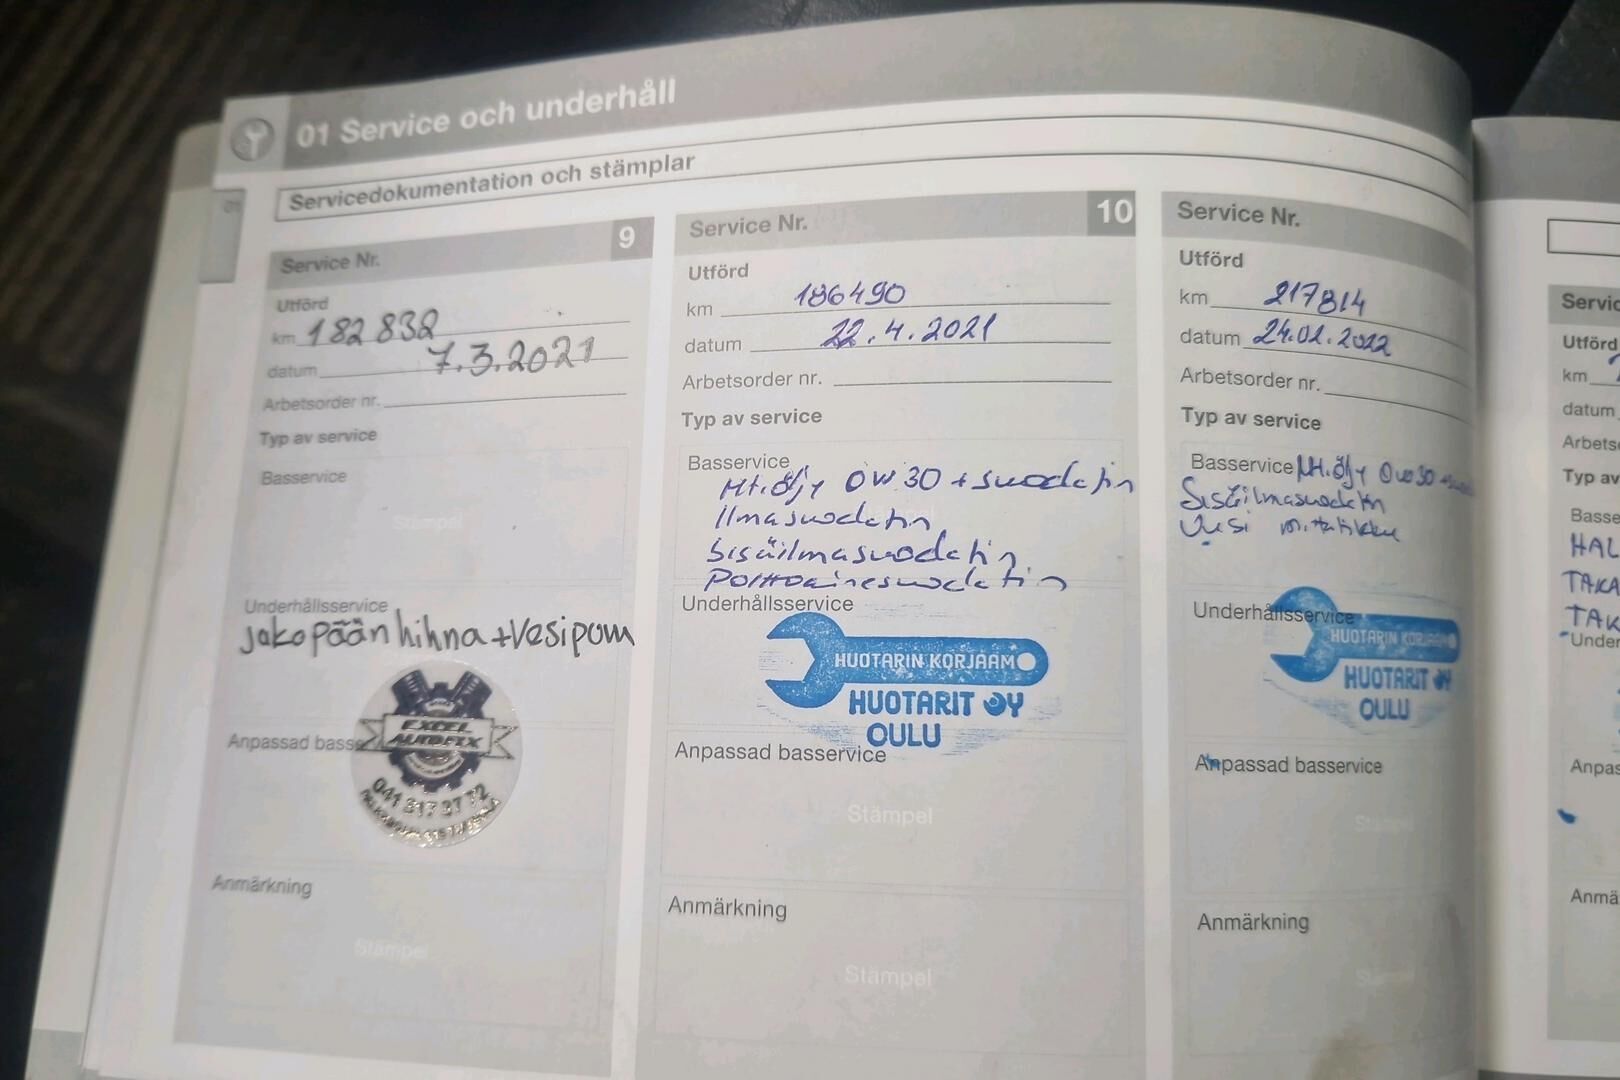 01 Service och underhåll
Servicedokumentation och stämplar
01
Service Nr. 9
Utförd
km 182 832
datum 7.3.2021
Arbetsorder nr.
Typ av service
Basservice
Stämpel
Underhållsservice
jakopään hihna+Vesipum
EXCEL
AUTOFIX
041 317 37 72
Anpassad basse
Anmärkning
Stämpel
Service Nr. 10
Utförd
km 186490
datum 22.4.2021
Arbetsorder nr.
Typ av service
Basservice
Mt.öljy 0W30 + suodatin
Ilmasuodatin
Sisäilmasuodatin
Polttoainesuodatin
Underhållsservice
HUOTARIN KORJAAMO
HUOTARIT OY
OULU
Anpassad basservice
Stämpel
Anmärkning
Stämpel
Service Nr.
Utförd
km 217814
datum 24.02.2022
Arbetsorder nr.
Typ av service
Basservice Mt.öljy 0W30 +
Sisäilmasuodatin
Uusi mittatikku
Underhållsservice
HUOTARIN KORJAAMO
HUOTARIT OY
OULU
Anpassad basservice
Stämpel
Anmärkning
Servic
Utförd
km
datum
Arbets
Typ av
Basse
HAL
TAKA
TAK
Under
Anpas
Anmä